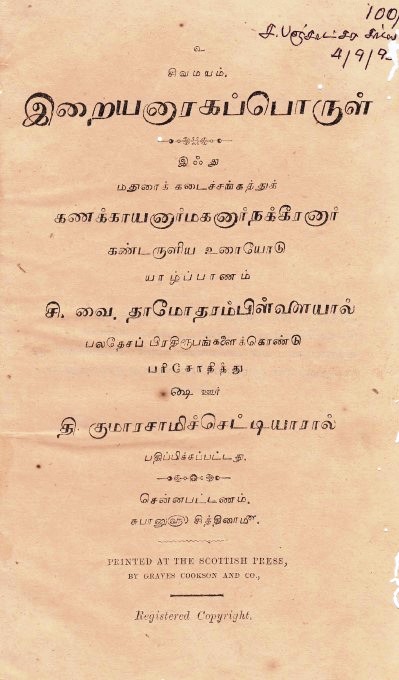 100
4/9/9
உ
சிவமயம்.
இறையனாரகப்பொருள்
இஃது
மதுரைக் கடைச்சங்கத்துக்
கணக்காயனார்மகனார்நக்கீரனார்
கண்டருளிய உரையோடு
யாழ்ப்பாணம்
சி. வை. தாமோதரம்பிள்ளையால்
பலதேசப் பிரதிரூபங்களைக்கொண்டு
பரிசோதித்து
ஊர்
தி. குமாரசாமிச்செட்டியாரால்
பதிப்பிக்கப்பட்டது.
சென்னபட்டணம்.
சுபானு௵ சித்திரை௴.
PRINTED AT THE SCOTTISH PRESS,
BY GRAVES COOKSON AND CO.,
Registered Copyright.